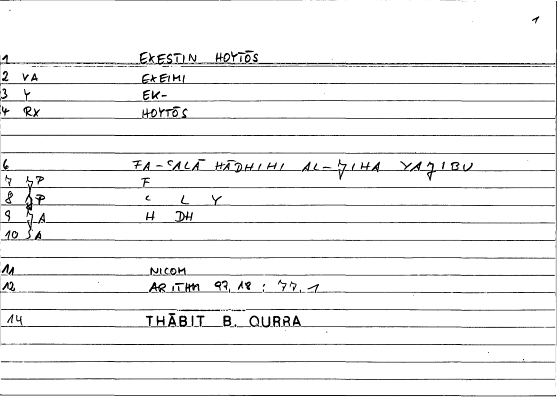 1
1 EXESTIN HOYTŌS
2 VA EXEIMI
3 Y EK-
4 RX HOYTŌS
6 FA-ʿALĀ HĀDHIHI AL-ǮIHA YAǮIBU
7 ǮP F
8 P ʿ L Y
9 ǮA H DH
10 A
11 NICOM
12 ARITHM 93,18 : 77,1
14 THĀBIT B. QURRA